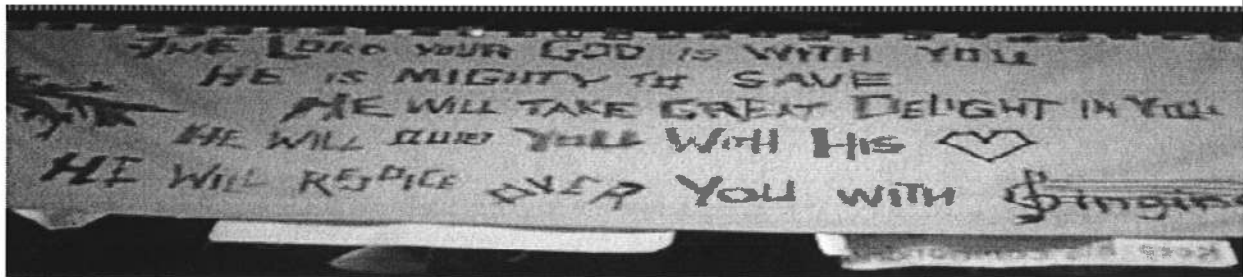 THE LORD YOUR GOD IS WITH YOU
HE IS MIGHTY TO SAVE
HE WILL TAKE GREAT DELIGHT IN YOU
HE WILL QUIET YOU WITH HIS
HE WILL REJOICE OVER YOU WITH Singing